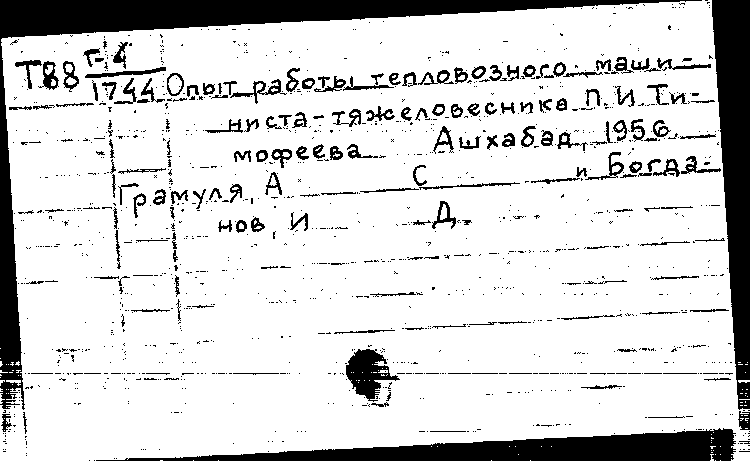 Т88 Г-4
1744 Опыт работы тепловозного маши-
ниста-тяжеловесника П. И. Ти-
мофеева Ашхабад, 1956.
Грамуля, А С и Богда-
нов, И Д.